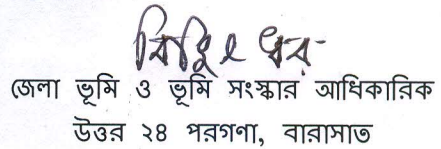 জেলা ভূমি ও ভূমি সংস্কার আধিকারিক
উত্তর ২৪ পরগণা, বারাসাত